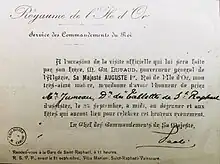 Royaume de l'Ile d'Or
Service des Commandements du Roi
A l'occasion de la visite officielle qui lui sera faite
par son frère, M. Ch. LUTAUD, gouverneur général de
l'Algérie, Sa Majesté AUGUSTE Ier, Roi de l'Ile d'Or, mon
très aimé maître, m'ordonne d'avoir l'honneur de prier
Mr Juneau, Dr de la Gazette de St Raphaël
, le 25 septembre, à midi, au déjeuner et aux
fêtes qui auront lieu pour célébrer cet heureux événement.
Le Chef des Commandements de Sa
Rendez-vous à la Gare de Saint-Raphaël, à 11 heures
R. S. V. P. avant le 21 septembre, Villa Marion, Saint-Raphaël